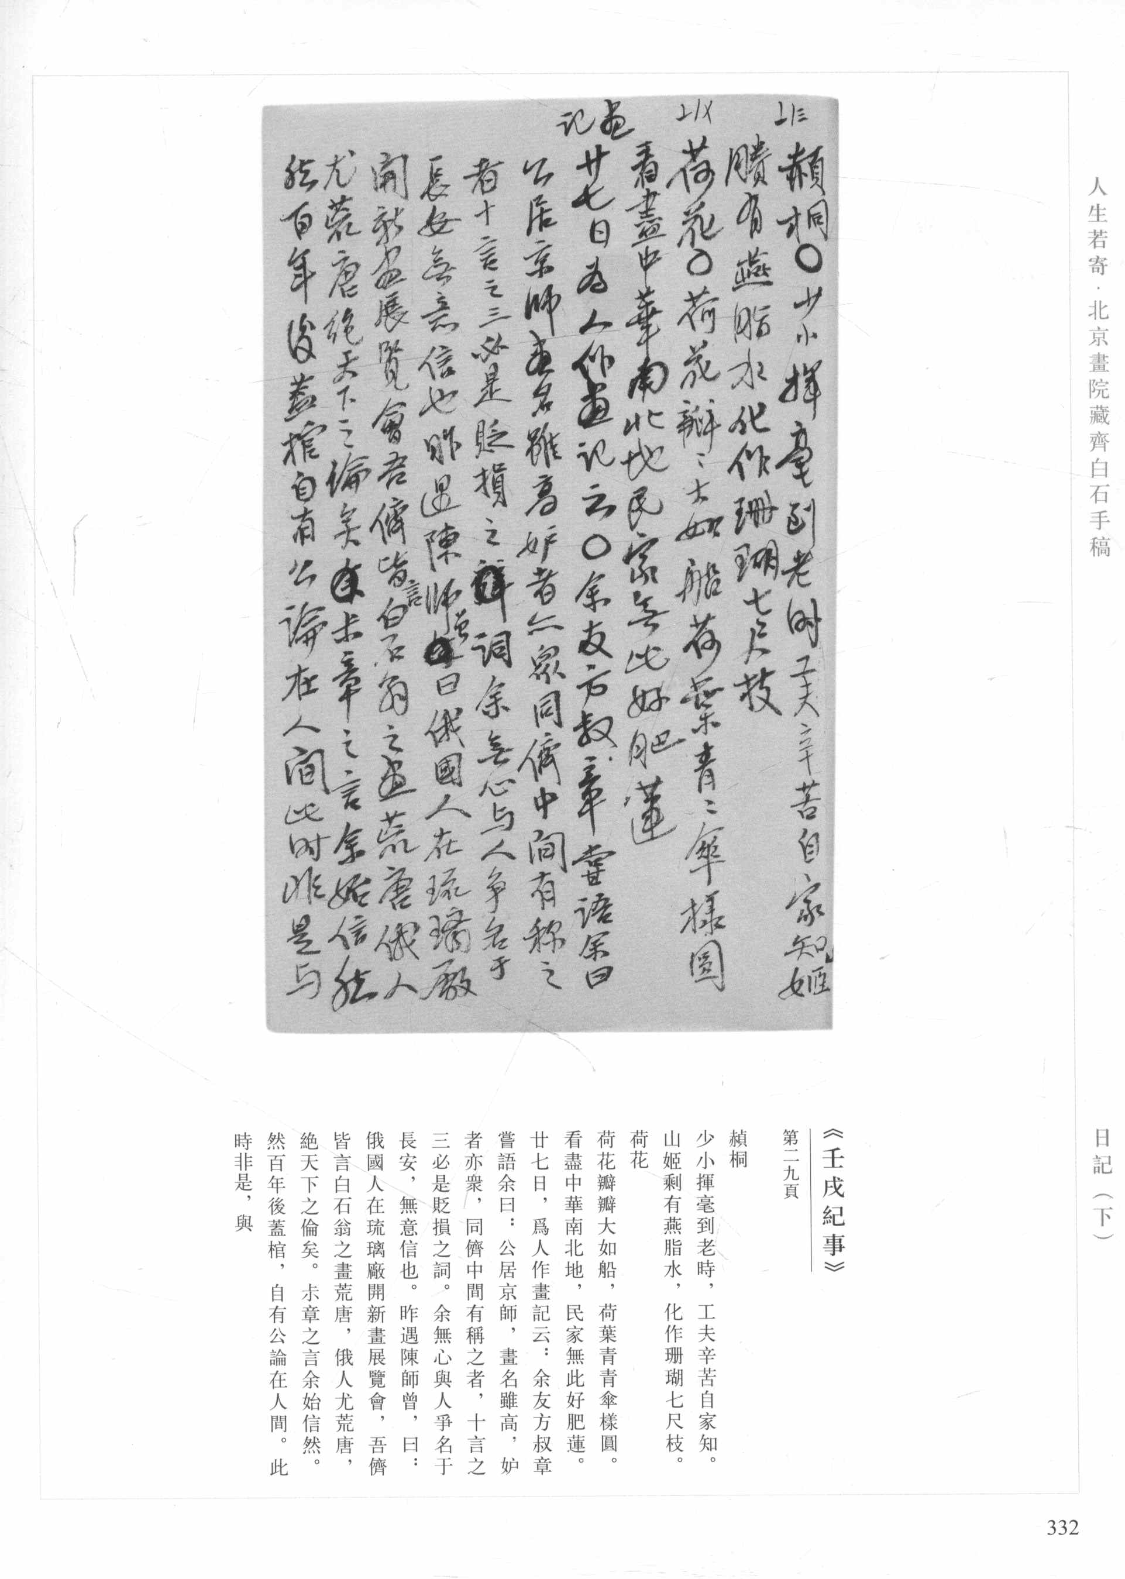 人生若寄·北京畫院藏齊白石手稿
日記（下）
赬桐〇少小揮毫到老時工夫辛苦自家知姬
賸有燕脂水化作珊瑚七尺枝
荷花〇荷花瓣〻大如船荷葉青〻傘樣圓
看盡中華南北地民家無此好肥蓮
畫記
廿七日為人作畫記云〇余友方叔章嘗語余曰
公居京師畫名雖高妒者亦衆同儕中間有称之
者十言之三必是貶損之詞余無心与人争名于
長安無意信也昨遇陳師曾曰俄國人在琉璃廠
開新畫展覽會吾儕皆言白石翁之畫荒唐俄人
尤荒唐絶天下之倫矣尗章之言余始信然
然百年後蓋棺自有公論在人間此時非是与
《壬戌紀事》
第二九頁
赬桐
少小揮毫到老時，工夫辛苦自家知。
山姬剩有燕脂水，化作珊瑚七尺枝。
荷花
荷花瓣瓣大如船，荷葉青青傘樣圓。
看盡中華南北地，民家無此好肥蓮。
廿七日，爲人作畫記云：余友方叔章
嘗語余曰：公居京師，畫名雖高，妒
者亦衆，同儕中間有稱之者，十言之
三必是貶損之詞。余無心與人爭名于
長安，無意信也。昨遇陳師曾，曰：
俄國人在琉璃廠開新畫展覽會，吾儕
皆言白石翁之畫荒唐，俄人尤荒唐，
絶天下之倫矣。尗章之言余始信然。
然百年後蓋棺，自有公論在人間。此
時非是，與
332